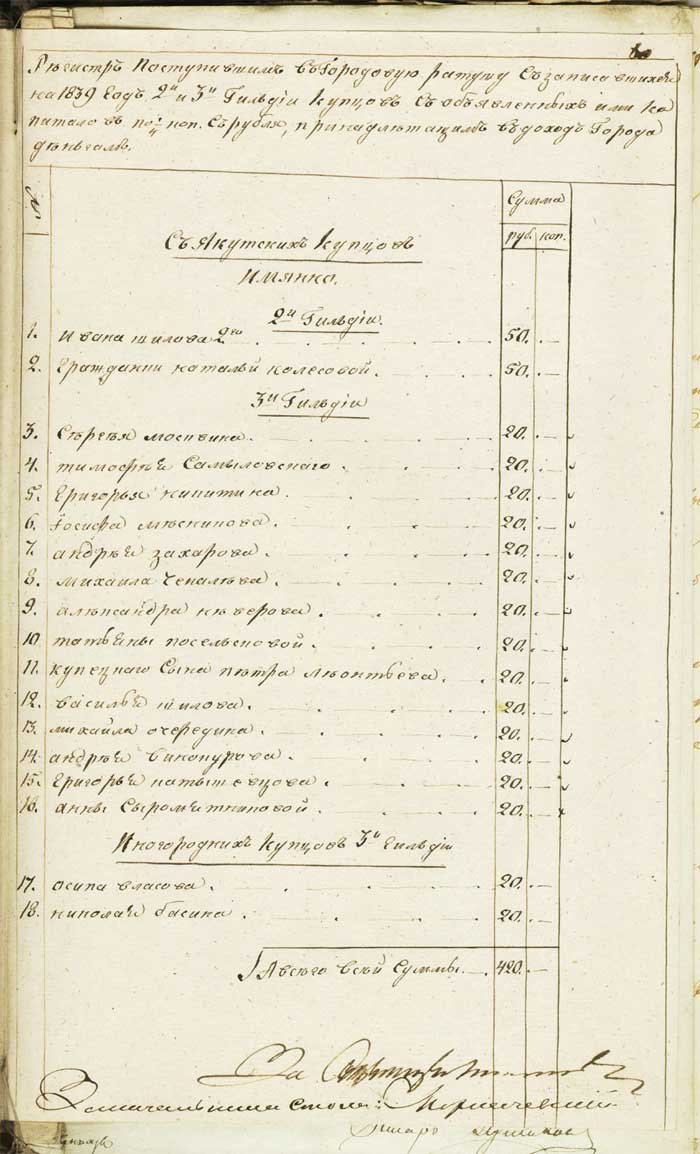 Регистръ Поступившимъ въ Городовую ратушу Съ записавшихся
на 1839 Годъ 2й и 3й Гильдіи Купцовъ Съ объявленныхъ ими Ка
питаловъ по ¼ коп. Съ рубля, принадлежащимъ въ доходъ Города
деньгамъ.
№
Сумма
руб. коп.
Съ Якутскихъ Купцовъ
Имянно.
2й Гильдіи.
1. Ивана Шилова 2го 50. —
2. Гражданки Натальи Колесовой. 50. —
3й Гильдіи
3. Сергея Москвина. 20. —
4. Тимофея Самыловскаго. 20. —
5. Григорья Никитина. 20. —
6. Іосифа 20. —
7. Андрея Захарова. 20. —
8. Михаила Чепалева. 20. —
9. Александра Неверова. 20. —
10 Татьяны Посельсковой. 20. —
11. Купецкаго Сына Петра Леонтьева. 20. —
12. Василья Шилова. 20. —
13. Михаила Очередина. 20. —
14. Андрея Винокурова. 20. —
15. Григорья 20. —
16. Анны Сыромятниковой. 20. —
Иногородних Купцовъ 3й Гильдіи
17. Осипа Власова. 20. —
18. Николая Басина. 20. —
А всего всей Суммы. 420. —
За